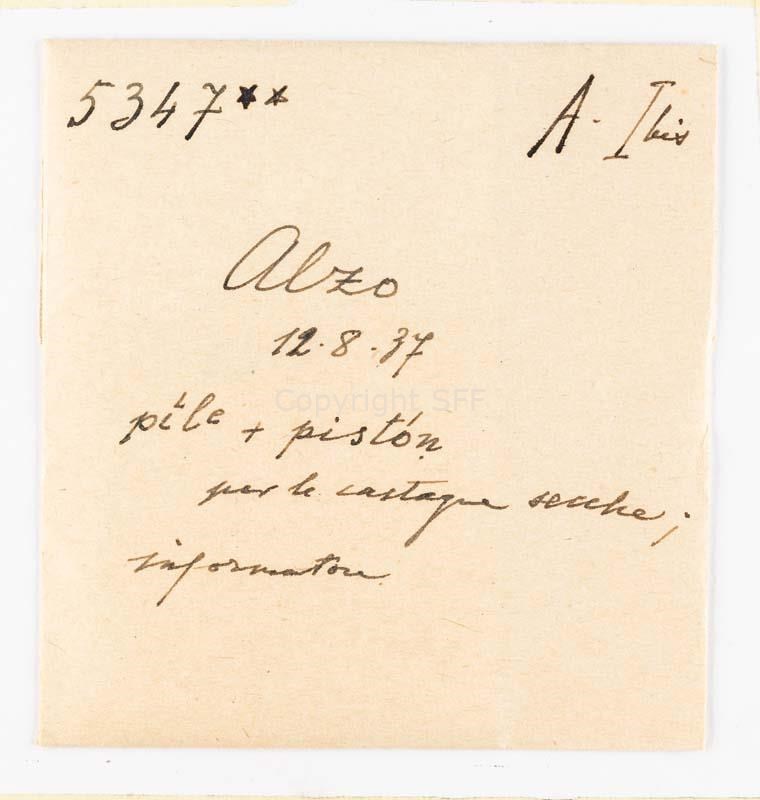 5347** A. I bis
Alzo
12.8.37
Copyright SFF
pile + pistón
per le castagne secche;
informatore